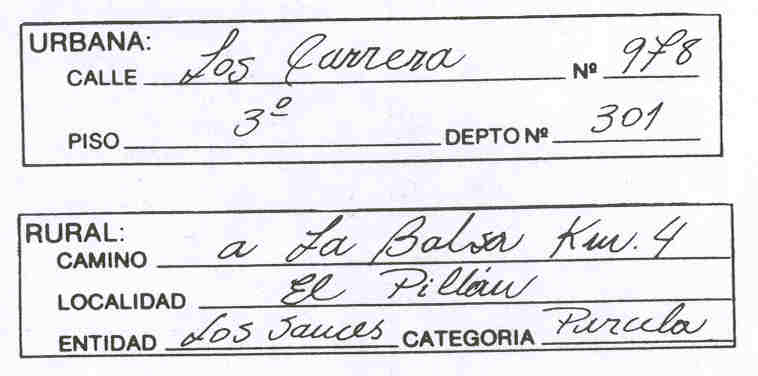 URBANA:
CALLE Los Carrera Nº 978
PISO 3º DEPTO Nº 301
RURAL:
CAMINO a La Balsa Km. 4
LOCALIDAD El Pillán
ENTIDAD Los Sauces CATEGORIA Parcela